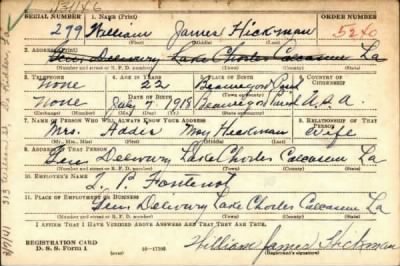 SERIAL NUMBER 1. NAME (Print) ORDER NUMBER
279 William James Hickman 5240
(First) (Middle) (Last)
2. ADDRESS (Print)
Gen Delivery Lake Charles Calcasieu La
(Number and street or R. F. D. number) (Town) (County) (State)
3. TELEPHONE 4. AGE IN YEARS 5. PLACE OF BIRTH 6. COUNTRY OF CITIZENSHIP
None 22 Beauregard
DATE OF BIRTH (Town or county)
None July 7 1918 Beauregard U. S. A.
(Exchange) (Number) (Mo.) (Day) (Yr.) (State or country)
7. NAME OF PERSON WHO WILL ALWAYS KNOW YOUR ADDRESS 8. RELATIONSHIP OF THAT PERSON
Mrs. Addie May Hickman Wife
(Mr., Mrs., Miss) (First) (Middle) (Last)
9. ADDRESS OF THAT PERSON
Gen Delivery Lake Charles Calcasieu La
(Number and street or R. F. D. number) (Town) (County) (State)
10. EMPLOYER'S NAME
P. Fontenot
11. PLACE OF EMPLOYMENT OR BUSINESS
Gen Delivery Lake Charles Calcasieu La
(Number and street or R. F. D. number) (Town) (County) (State)
I AFFIRM THAT I HAVE VERIFIED ABOVE ANSWERS AND THAT THEY ARE TRUE.
REGISTRATION CARD
D. S. S. Form 1 (over) 16-17105
William James Hickman
(Registrant's signature)